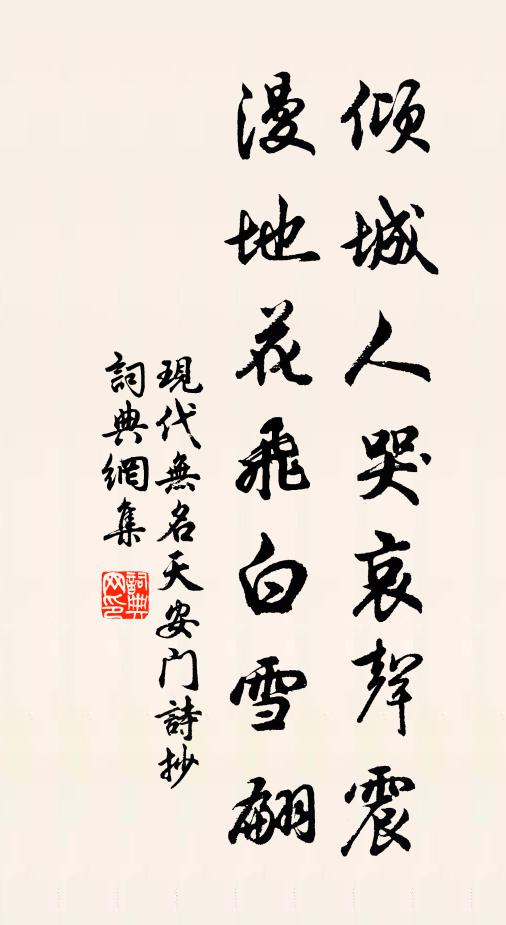 傾城人哭哀聲震
漫地花飛白雪翩
現代無名天安门詩抄
詞典網集
詞典网印